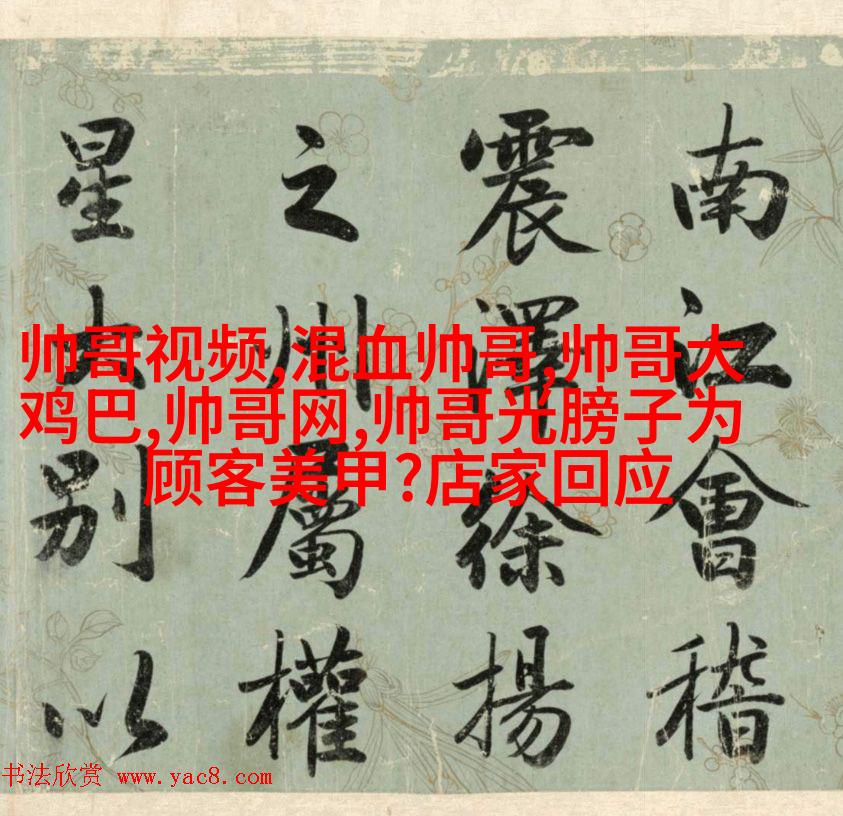 南江會稽
震澤徐揚
之州屬權
星大別以
帅哥视频,混血帅哥,帅哥大
鸡巴,帅哥网,帅哥光膀子为
顾客美甲?店家回应
书法欣赏 www.yac8.com